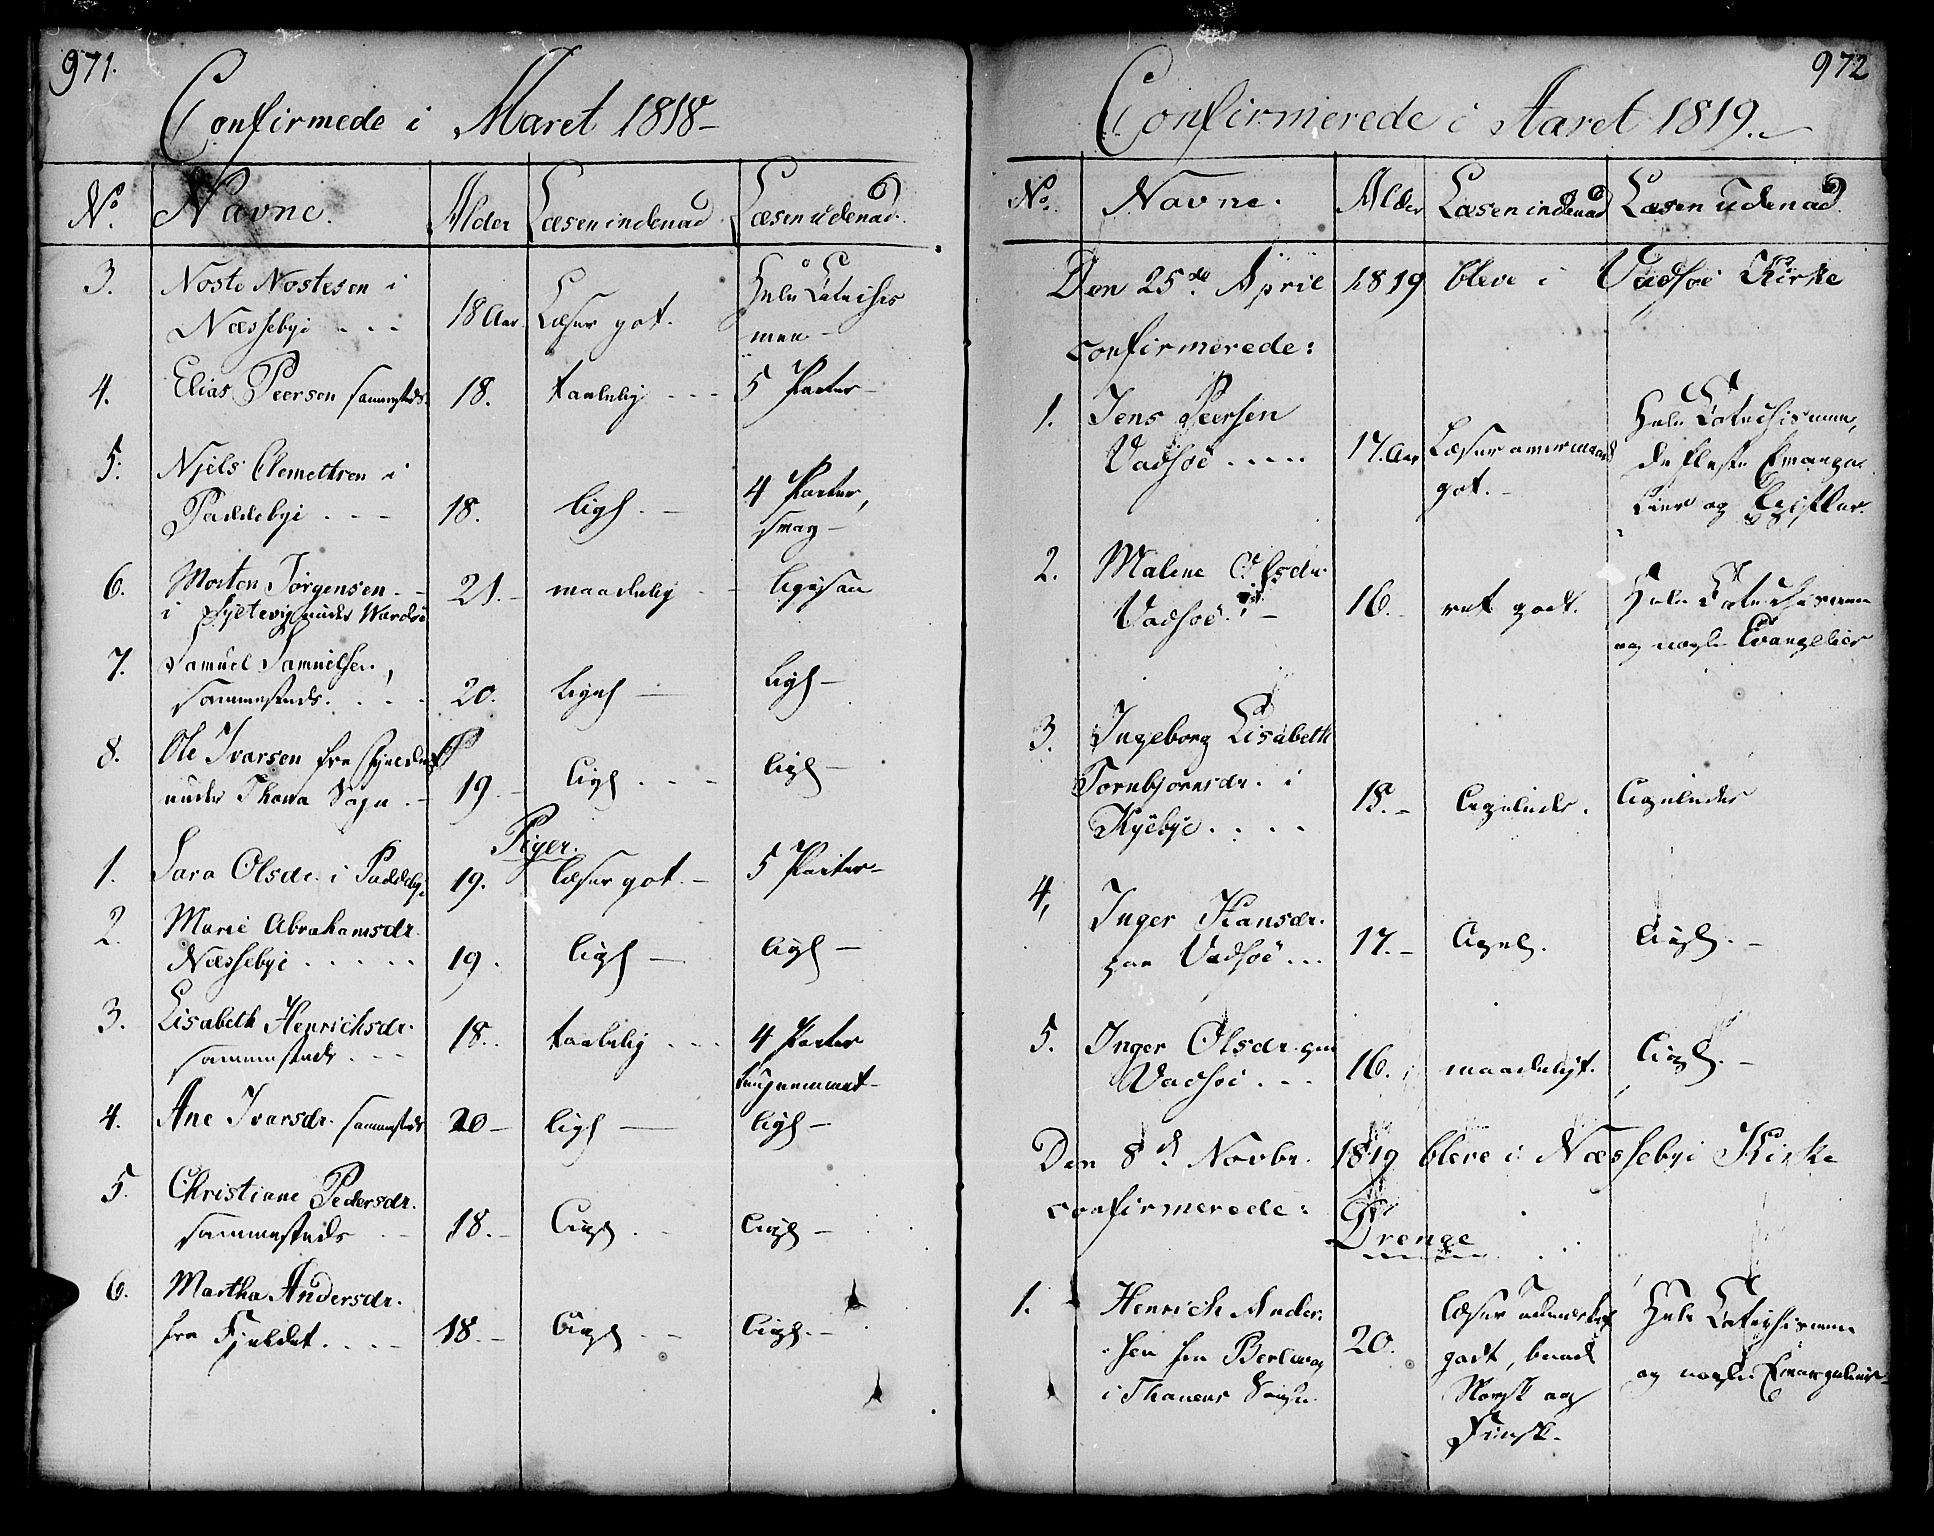 971.
Confirmede i Aaret 1818
No. Navne. Alder Læsen indenad Læsen udenad.
3. Noste Nostesen i
Næssebyi 18 Aar. Læser got. Hele Catechis
men
4. Elias Peersen sammesteds. 18. taalelig 5 Parter
5. Njels Clemetsen i
Paddebyi 18. ligl. 4 Parter,
svag
6. Morten Jørgensen
i Syltevig under Wardø 21. maadelig ligesaa
7. Samuel Samuelsen,
sammesteds. 20. ligel. ligl.
8. Ole Ivarsen fra Fjeldet
under Thana Sogn 19. ligl. ligl.
Piger.
1. Sara Olsdr. i Paddeby. 19. læser got. 5 Parter
2. Marie Abrahamsdr.
Næssebyi 19. ligl. ligl.
3. Lisabeth Henrichsdr.
sammesteds 18. taalelig 4 Parter
tungnemmet
4. Ane Ivarsdr. sammesteds 20 ligl. ligl.
5. Christiane Pedersdr.
sammesteds 18. ligl. ligl.
6. Martha Andersdr.
fra Fjeldet 18. ligl. ligl.
972
Confirmerede i Aaret 1819.
No. Navne. Alder Læsen indenad Læsen udenad
Den 25de April 1819 bleve i Vadsøe Kirke
confirmerede:
1. Jens Peersen
Vadsøe 17. Aar Læser omermaad
got. Hele Catechismen,
de fleste Evange
lier og Epistler.
2. Malene Olsdr.
Vadsøe. 16. ret godt. Hele Catechismen
og nogle Evangelier
3. Ingeborg Lisabeth
Tornbjørnsdr. i
Kyebye 18. ligeledes. ligeledes
4, Inger Hansdr.
paa Vadsøe 17. ligel. ligl.
5. Inger Olsdr. paa
Vadsøe 16. maadeligt. ligl.
Den 8d. Novbr. 1819 bleve i Næssebyi Kirke
confirmerede:
Drenge
1. Henrich Ander
sen fra Berlevog
i Thanens Sogn. 20. læser udmærket
godt, baade
Norsk og
Finsk. Hele Catechismen
og nogle Evangelier